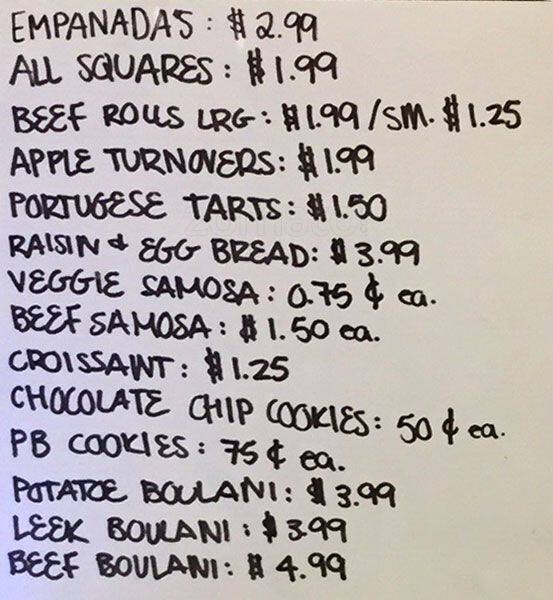 EMPANADAS: $2.99
ALL SQUARES: $1.99
BEEF ROLLS LRG: $1.99/SM. $1.25
APPLE TURNOVERS: $1.99
PORTUGESE TARTS: $1.50
RAISIN & EGG BREAD: $3.99
VEGGIE SAMOSA: 0.75¢ ea.
BEEF SAMOSA: $1.50 ea.
CROISSANT: $1.25
CHOCOLATE CHIP COOKIES: 50¢ ea.
PB COOKIES: 75¢ ea.
POTATOE BOULANI: $3.99
LEEK BOULANI: $3.99
BEEF BOULANI: $4.99